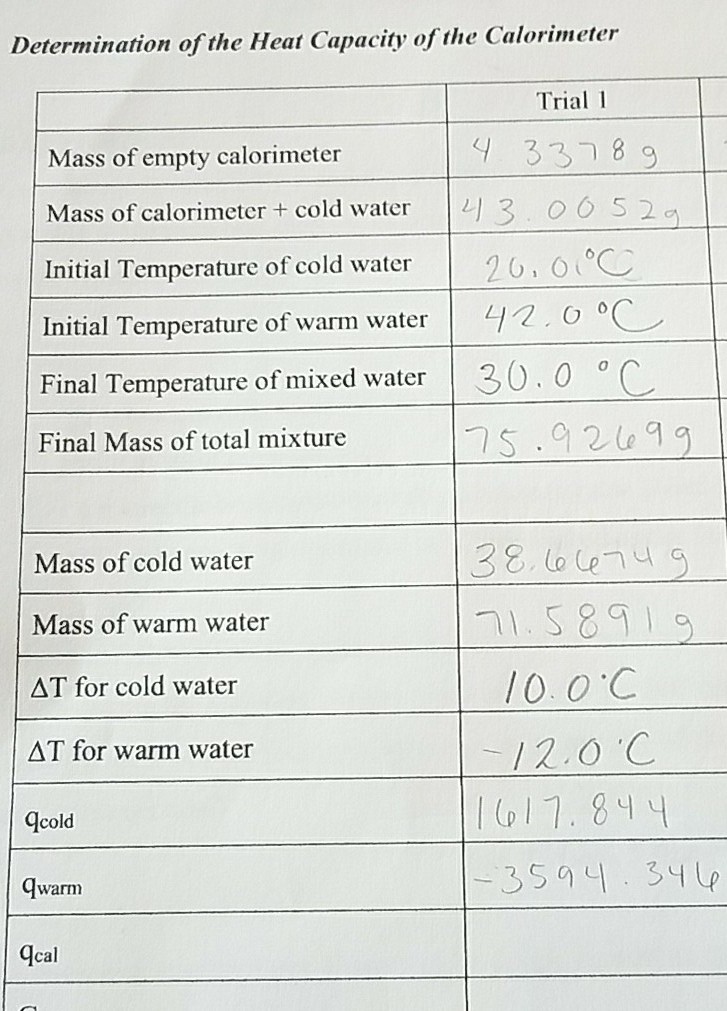 Determination of the Heat Capacity of the Calorimeter
Trial 1
Mass of empty calorimeter 4.3378g
Mass of calorimeter + cold water 43.0052g
Initial Temperature of cold water 20.0°C
Initial Temperature of warm water 42.0°C
Final Temperature of mixed water 30.0 °C
Final Mass of total mixture 75.9269g
Mass of cold water 38.6674g
Mass of warm water 71.5891g
ΔT for cold water 10.0°C
ΔT for warm water -12.0°C
qcold 1617.844
qwarm -3594.346
qcal